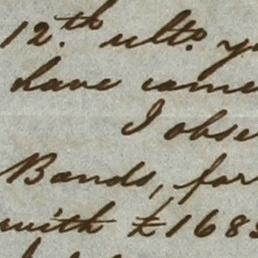 12.th ulto. y
have came
I obse
Bonds, for
with £168